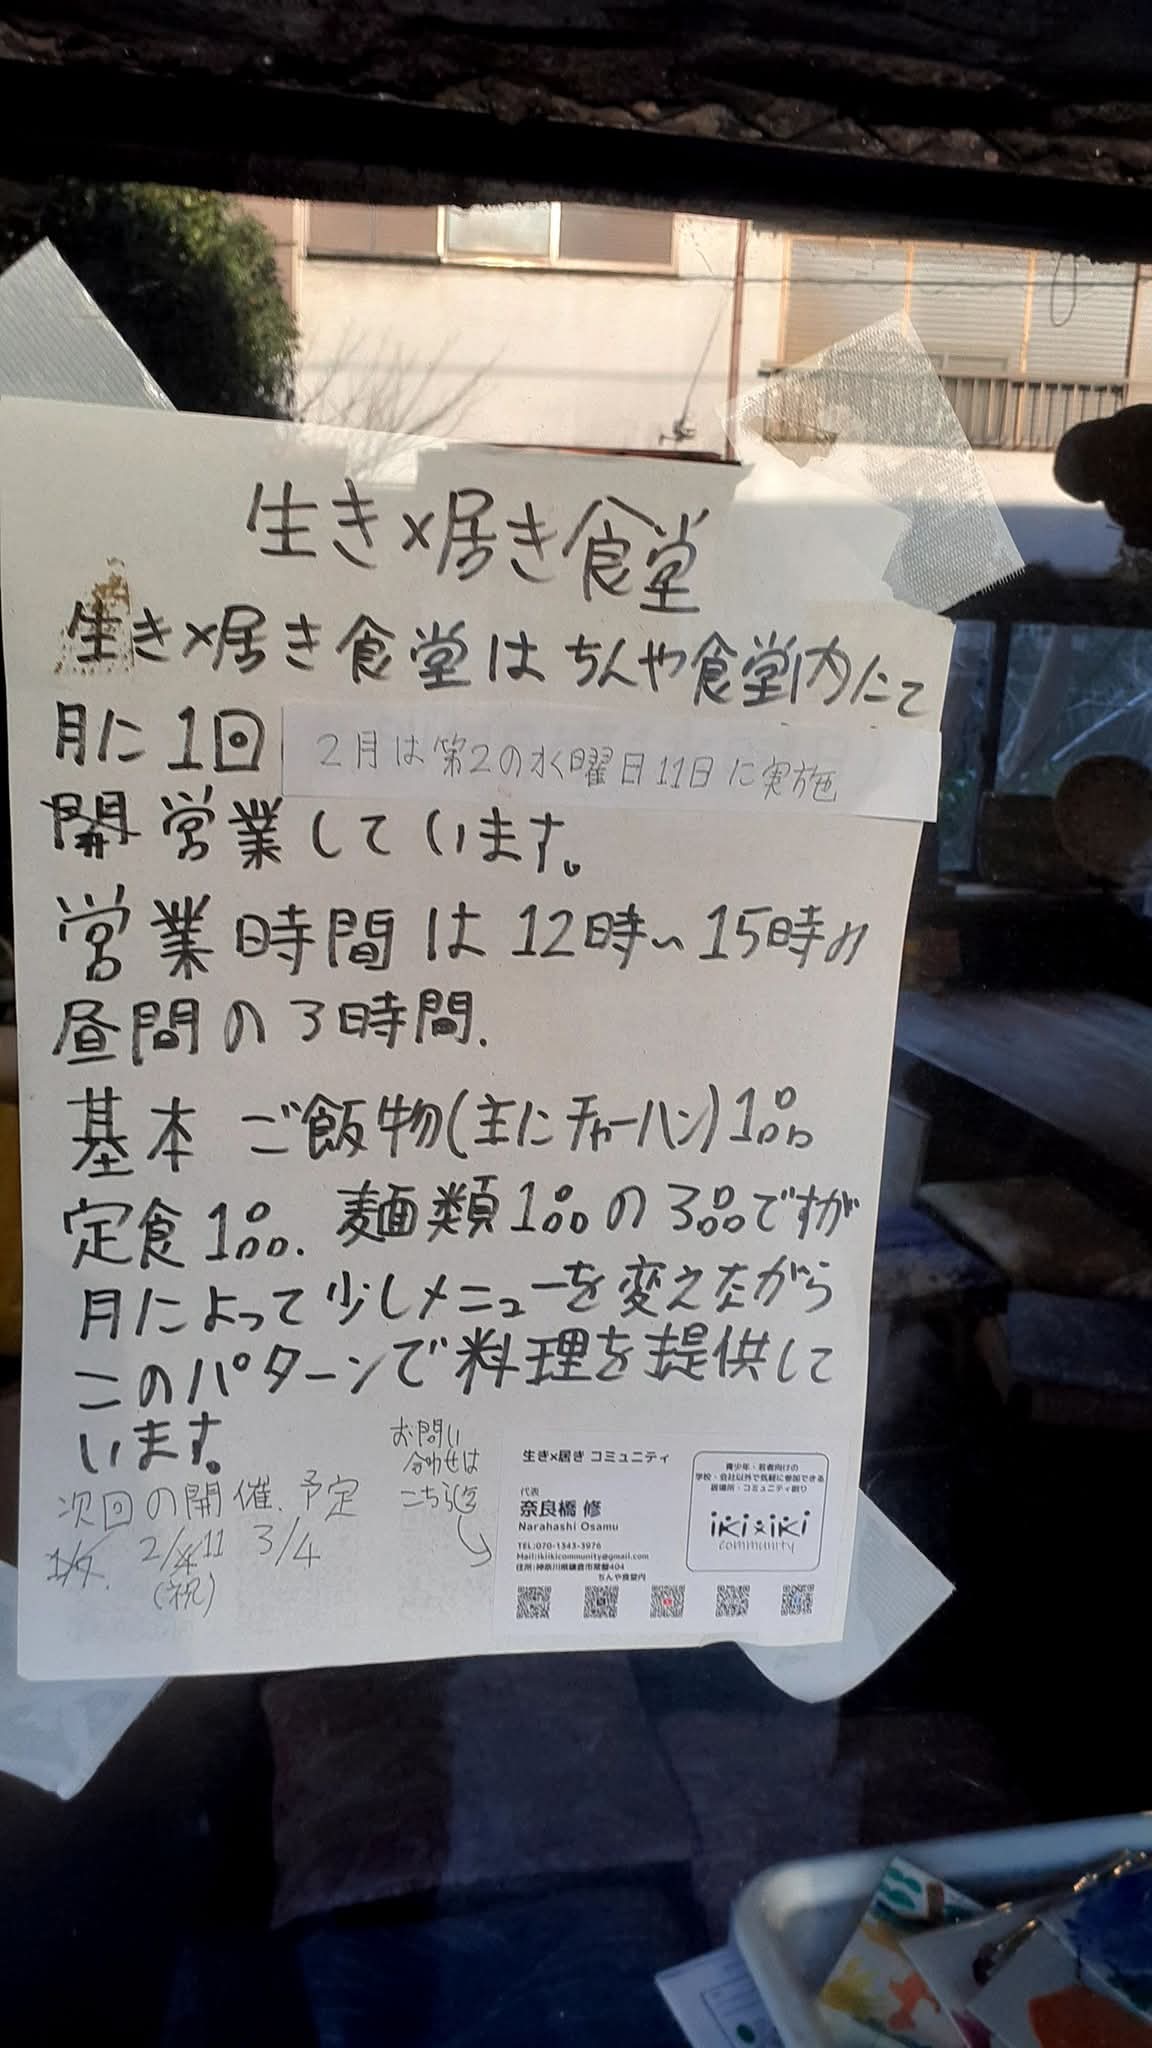 生き×居き食堂
生き×居き食堂は ちんや食堂内にて
月に1回
2月は第2の水曜日11日に実施
開営業しています。
営業時間は 12時〜15時の
昼間の3時間.
基本 ご飯物(主にチャーハン)1品
定食1品. 麺類1品の3品ですが
月によって少しメニューを変えながら
このパターンで料理を提供して
います。
次回の開催.予定
1/7. 2/4 11 3/4
(祝)
お問い
合わせは
こちら迄
生き×居き コミュニティ
代表
奈良橋 修
Narahashi Osamu
TEL:070-1343-3976
Mail:ikiikicommunity@gmail.com
住所:神奈川県鎌倉市常盤404
ちんや食堂内
青少年・若者向けの
学校・会社以外で気軽に参加できる
居場所・コミュニティ創り
iki×iki
community